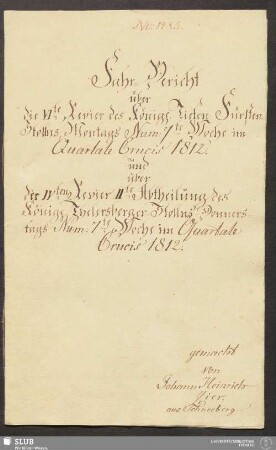 No: 1783.
Fahr Bericht
über
die VIte Revier des Königl. Tiefen Fürsten
Stollns, Montags Num. 7te Woche im
Quartale Crucis 1812.
und
über
der IVten Revier IIte Abtheilung des
Königl. Thelersberger Stollns, Donners
tags Num. 7te Woche im Quartale
Crucis 1812.
gemacht
von
Johann Heinrich
aus Schneeberg
SLUB